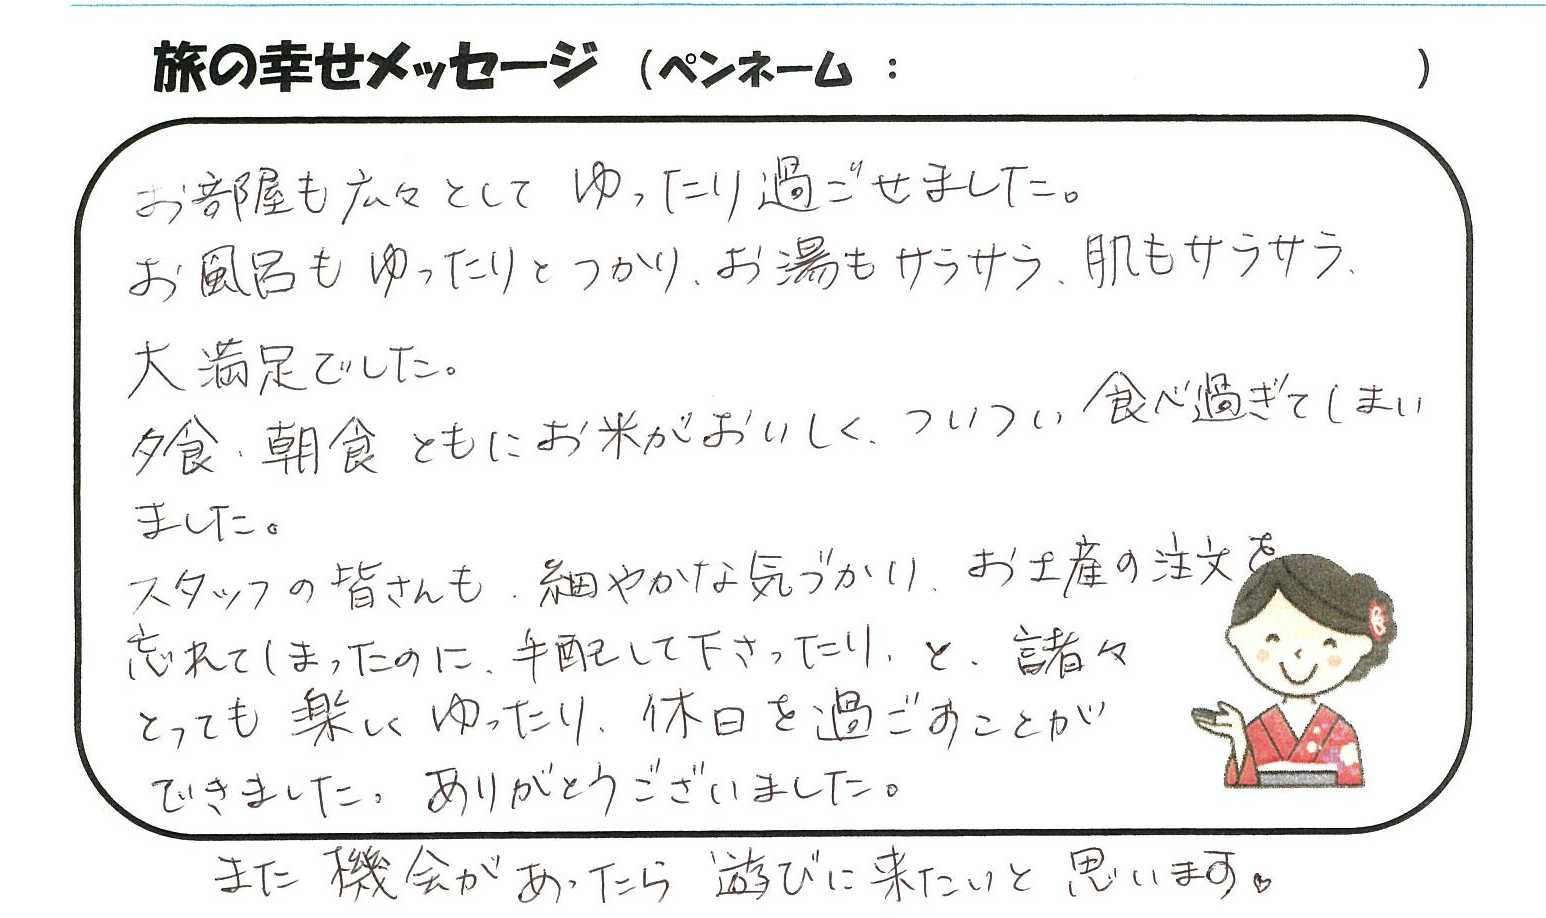 旅の幸せメッセージ （ペンネーム：　　　　　）
お部屋も広々として ゆったり過ごせました。
お風呂も ゆったりとつかり、お湯もサラサラ、肌もサラサラ、
大満足でした。
夕食・朝食 ともにお米がおいしく、ついつい食べ過ぎてしまい
ました。
スタッフの皆さんも、細やかな気づかい、お土産の注文を
忘れてしまったのに、手配して下さったり、と、諸々
とっても楽しく ゆったり、休日を過ごすことが
できました。ありがとうございました。
また機会があったら 遊びに来たいと思います。